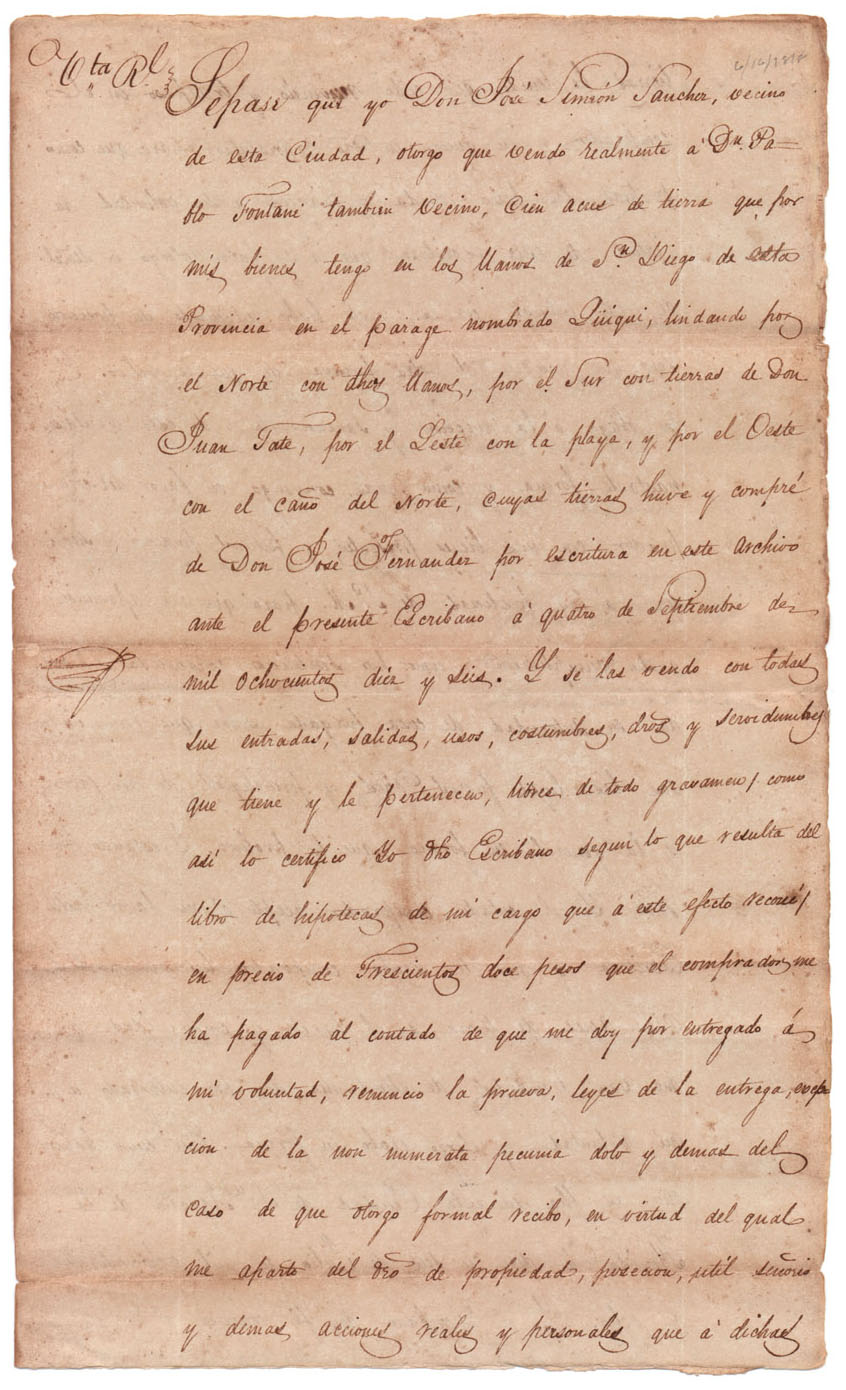 Vta Rl
4/14/1818
Sepase que yo Don José Simeón Sanchez, vecino
de esta Ciudad, otorgo que vendo realmente á Dn. Pa=
blo Fontané tambien vecino, Cien acres de tierra que por
mis bienes tengo en los llanos de Sn. Diego de esta
Provincia en el parage nombrado Qüiqui, lindando por
el Norte con dhos llanos, por el Sur con tierras de Don
Juan Tate, por el Leste con la playa, y por el Oeste
con el caño del Norte, cuyas tierras huve y compré
de Don José Fernandez por escritura en este Archivo
ante el presente Escribano á quatro de Septiembre de
mil ochocientos diez y seis. Y se las vendo con todas
sus entradas, salidas, usos, costumbres, dros y servidumbres
que tiene y le pertenecen, libres de todo gravamen/ como
así lo certifico Yo dho Escribano segun lo que resulta del
libro de hipotecas de mi cargo que á este efecto reconocí/
en precio de Trescientos doce pesos que el comprador me
ha pagado al contado de que me doy por entregado á
mi voluntad, renuncio la prueva, leyes de la entrega, excep
cion de la non numerata pecunia dolo y demas del
caso de que otorgo formal recibo, en virtud del qual
me aparto del dro de propiedad, posecion, util señorio
y demas acciones reales y personales que á dichas